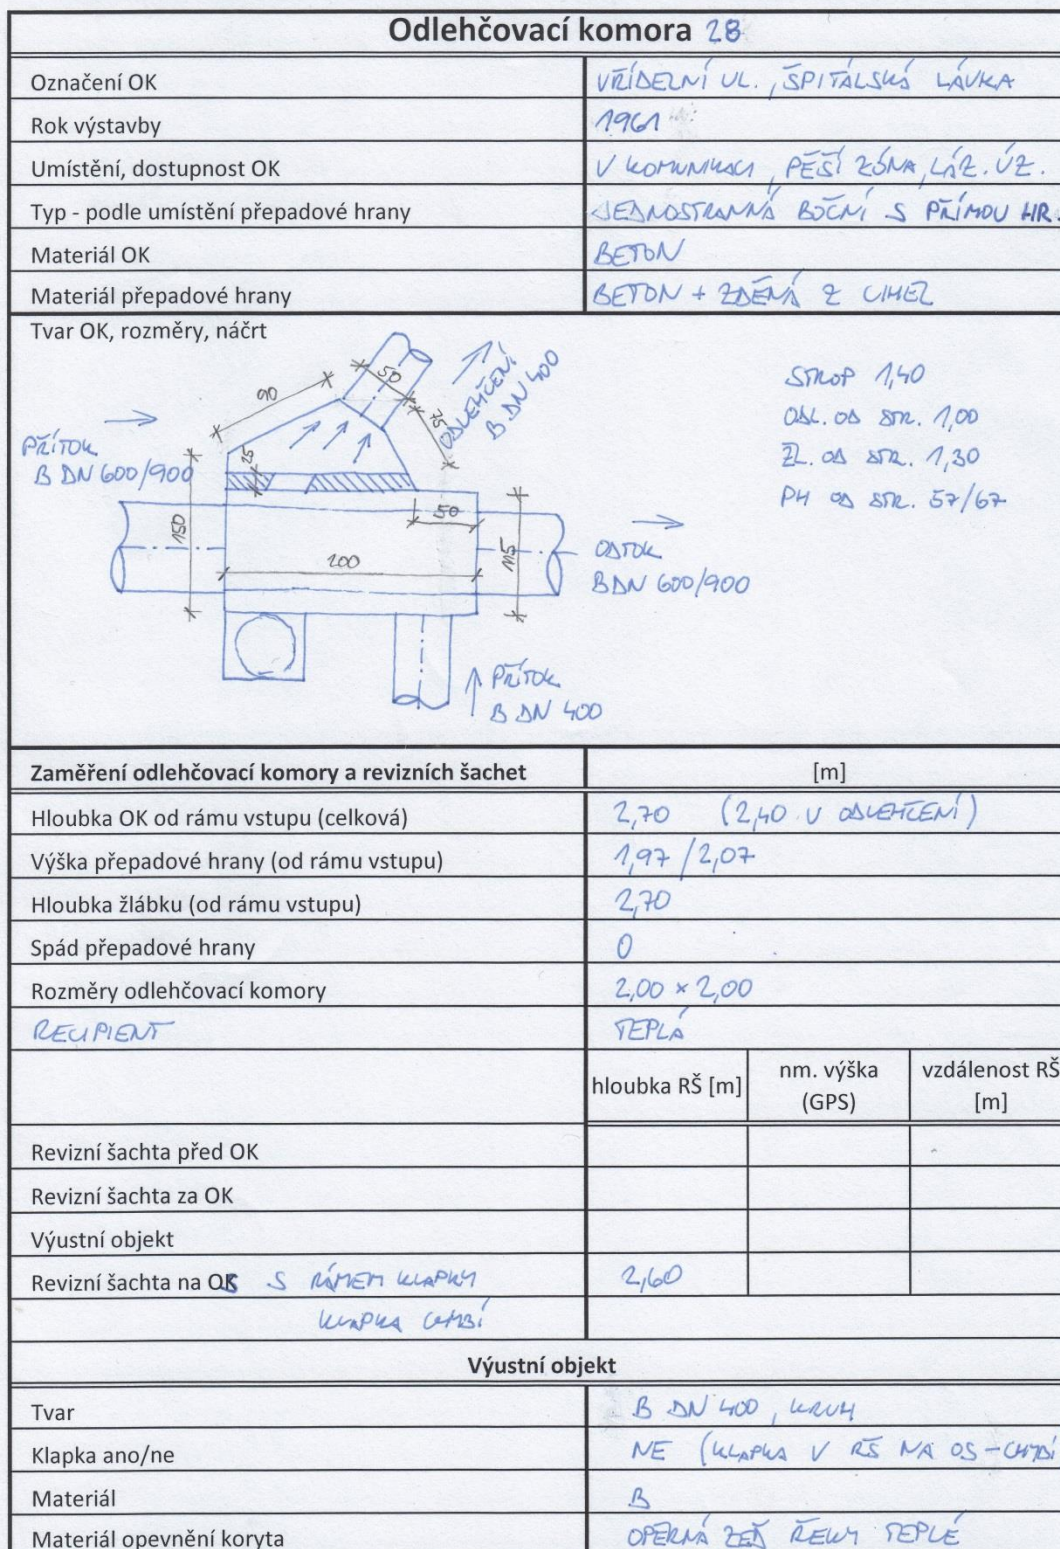 Odlehčovací komora 28
Označení OK VŘÍDELNÍ UL., ŠPITÁLSKÁ LÁVKA
Rok výstavby 1961
Umístění, dostupnost OK V KOMUNIKACI, PĚŠÍ ZÓNA, LÁZ. ÚZ.
Typ - podle umístění přepadové hrany JEDNOSTRANNÁ BOČNÍ S PŘÍMOU HR.
Materiál OK BETON
Materiál přepadové hrany BETON + ZDĚNÁ Z CIHEL
Tvar OK, rozměry, náčrt
PŘÍTOK
B DN 600/900
90
50
75
25
ODLEHČENÍ
B DN 400
150
200
50
115
ODTOK
B DN 600/900
PŘÍTOK
B DN 400
STROP 1,40
ODL. OD STR. 1,00
ŽL. OD STR. 1,30
PH OD STR. 57/67
Zaměření odlehčovací komory a revizních šachet [m]
Hloubka OK od rámu vstupu (celková) 2,70 (2,40 V ODLEHČENÍ)
Výška přepadové hrany (od rámu vstupu) 1,97/2,07
Hloubka žlábku (od rámu vstupu) 2,70
Spád přepadové hrany 0
Rozměry odlehčovací komory 2,00 × 2,00
RECIPIENT TEPLÁ
hloubka RŠ [m] nm. výška (GPS) vzdálenost RŠ [m]
Revizní šachta před OK
Revizní šachta za OK
Výustní objekt
Revizní šachta na OS S RÁMEM KLAPKY 2,60
KLAPKA CHYBÍ
Výustní objekt
Tvar B DN 400, KRUH
Klapka ano/ne NE (KLAPKA V RŠ NA OS - CHYBÍ
Materiál B
Materiál opevnění koryta OPĚRNÁ ZEĎ ŘEKY TEPLÉ